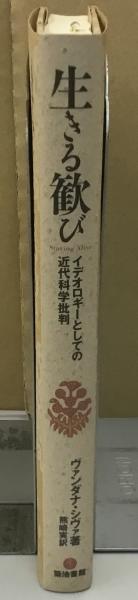 生きる歓び
Staying Alive
イデオロギーとしての
近代科学批判
ヴァンダナ・シヴァ著
熊崎実訳
築地書館